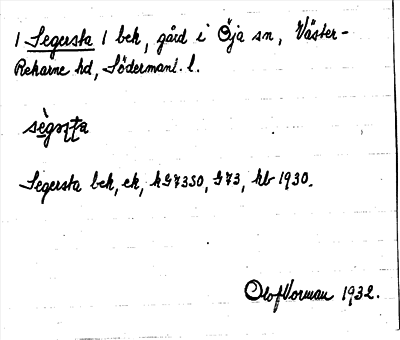 1 Segersta 1 bek, gård i Öja sn, Väster-
Rekarne hd, Södermanl. l.
Segersta bek, ek, hG73SO, G73, hb 1930.
Olof Vorman 1932.